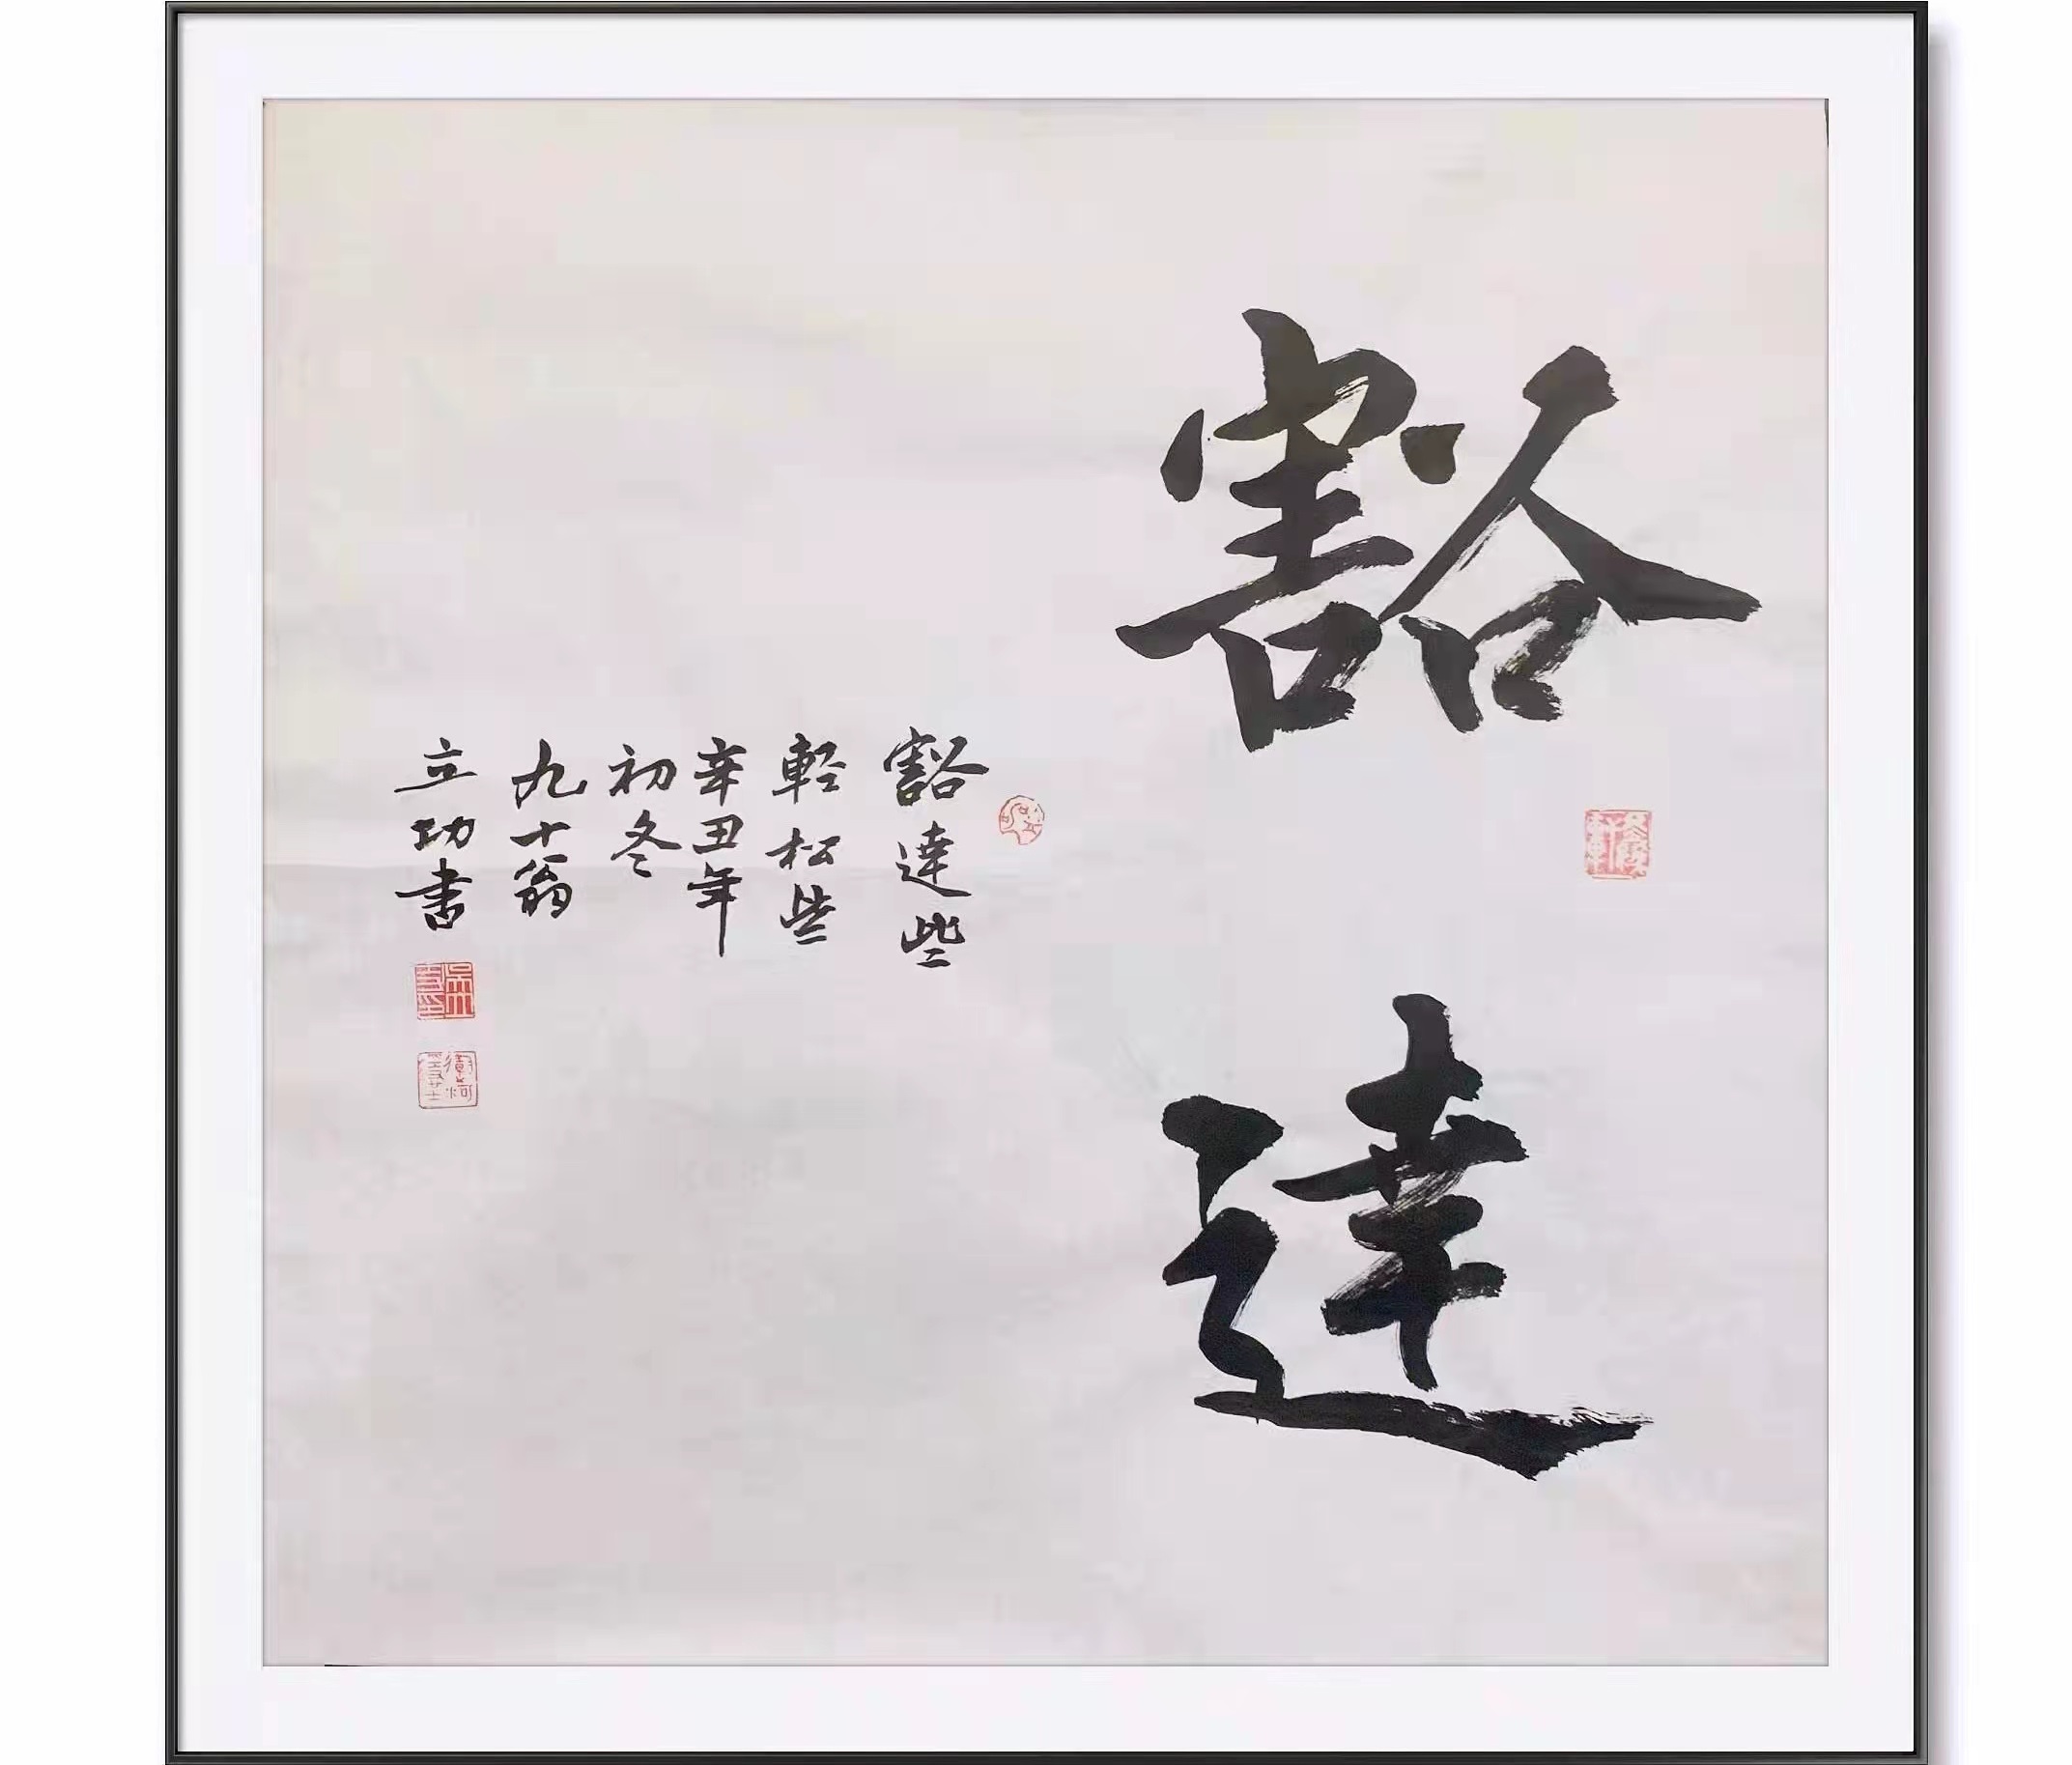 豁達
豁達些
輕松些
辛丑年
初冬
九十翁
立功書